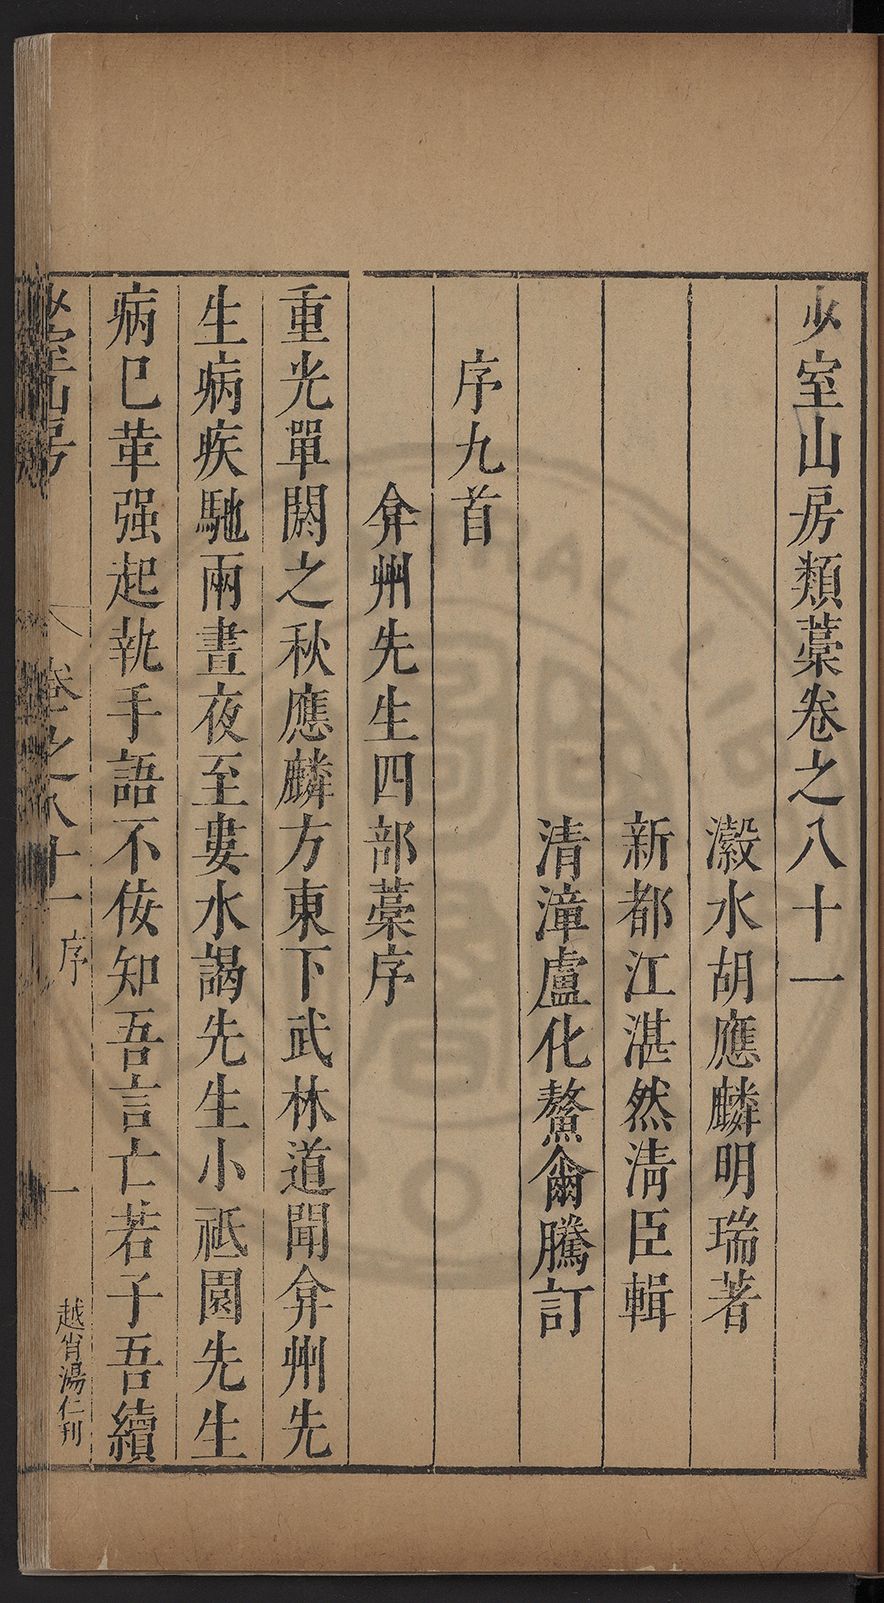 少室山房類藁卷之八十一
瀫水胡應麟明瑞著
新都江湛然清臣輯
清漳盧化鰲爾騰訂
序九首
弇州先生四部藁序
重光單閼之秋應麟方東下武林道聞弇州先
生病疾馳兩晝夜至婁水謁先生小祇園先生
病已革强起執手語不佞知吾言亡若子吾續
少室山房
卷之八十一 序
一
越省湯仁刊